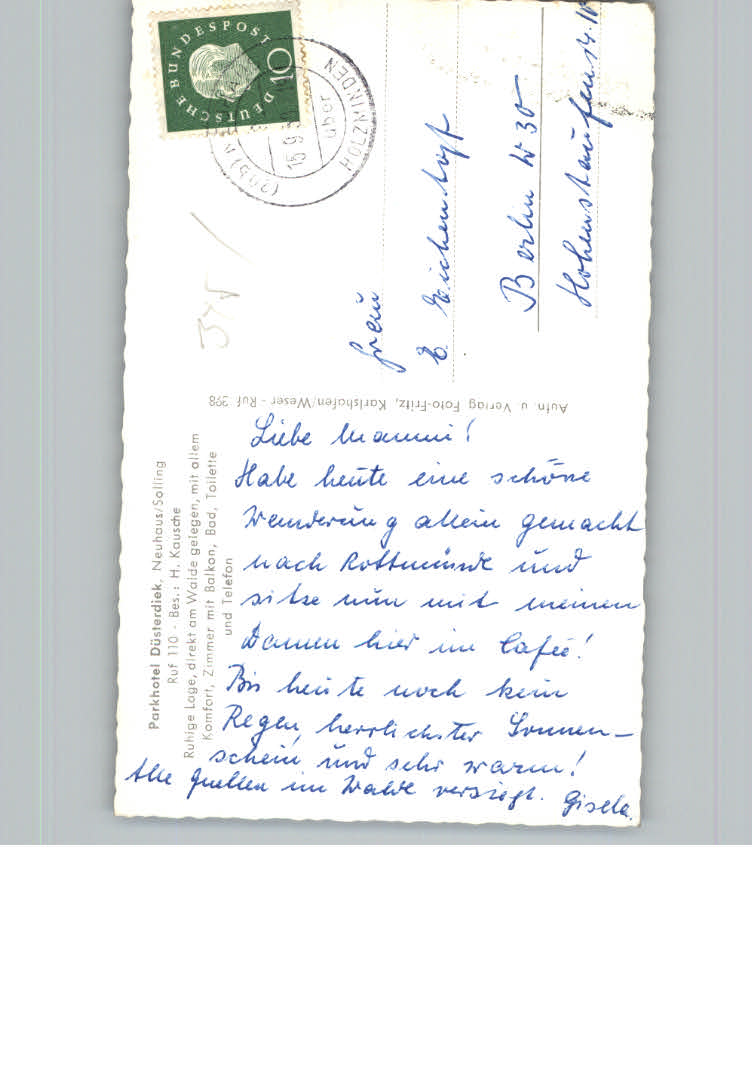 Parkhotel Düsterdiek, Neuhaus/Solling
Ruf 110 - Bes.: H. Kausche
Ruhige Lage, direkt am Walde gelegen, mit allem
Komfort, Zimmer mit Balkon, Bad, Toilette
und Telefon
Liebe Mammi!
Habe heute eine schöne
Wanderung allein gemacht
nach Rottmünde und
sitze nun mit meinen
Damen hier im Cafée!
Bis heute noch kein
Regen, herrlichster Sonnen-
schein und sehr warm!
Alle Quellen im Walde versiegt. Gisela.
Aufn. u. Verlag Foto-Fritz, Karlshafen/Weser - Ruf 398
DEUTSCHE BUNDESPOST
10
(20b)
15.9.
über
HOLZMINDEN
Frau
E. Eichentopf
Berlin W 30
Hohenstaufenstr.